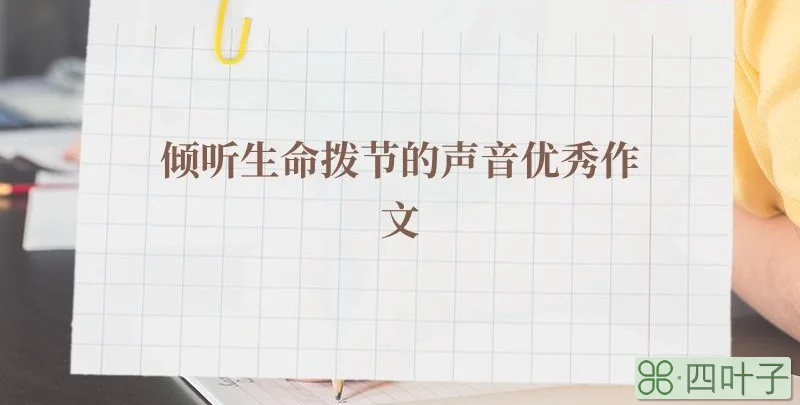 倾听生命拨节的声音优秀作
文
四叶子